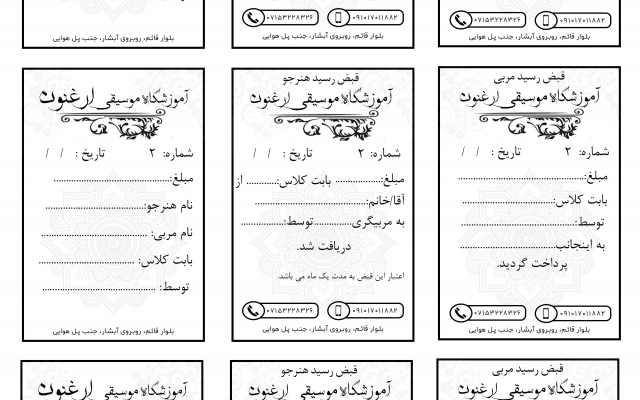 ۰۷۱۵۳۲۲۸۳۲۶ ۰۹۱۰۱۷۰۱۱۸۸۲
بلوار قائم، روبروی آبشار، جنب پل هوایی
۰۷۱۵۳۲۲۸۳۲۶ ۰۹۱۰۱۷۰۱۱۸۸۲
بلوار قائم، روبروی آبشار، جنب پل هوایی
بلوار قائم، روبروی آبشار، جنب پل هوایی
قبض رسید مربی
آموزشگاه موسیقی ارغنون
شماره: ۲ تاریخ : / /
مبلغ:..............................
بابت کلاس:..............................
توسط:..............................
به اینجانب..............................
پرداخت گردید.
۰۷۱۵۳۲۲۸۳۲۶ ۰۹۱۰۱۷۰۱۱۸۸۲
بلوار قائم، روبروی آبشار، جنب پل هوایی
قبض رسید هنرجو
آموزشگاه موسیقی ارغنون
شماره: ۲ تاریخ : / /
مبلغ:............... بابت کلاس:........... از
آقا/خانم:..............................
به مربیگری...............توسط:...............
دریافت شد.
اعتبار این قبض به مدت یک ماه می باشد.
۰۷۱۵۳۲۲۸۳۲۶ ۰۹۱۰۱۷۰۱۱۸۸۲
بلوار قائم، روبروی آبشار، جنب پل هوایی
آموزشگاه موسیقی ارغنون
شماره: ۲ تاریخ : / /
مبلغ:..............................
نام هنرجو:..............................
نام مربی: ..............................
بابت کلاس: ..............................
توسط: ..............................
بلوار قائم، روبروی آبشار، جنب پل هوایی
قبض رسید مربی
آموزشگاه موسیقی ارغنون
قبض رسید هنرجو
آموزشگاه موسیقی ارغنون
آموزشگاه موسیقی ارغنون